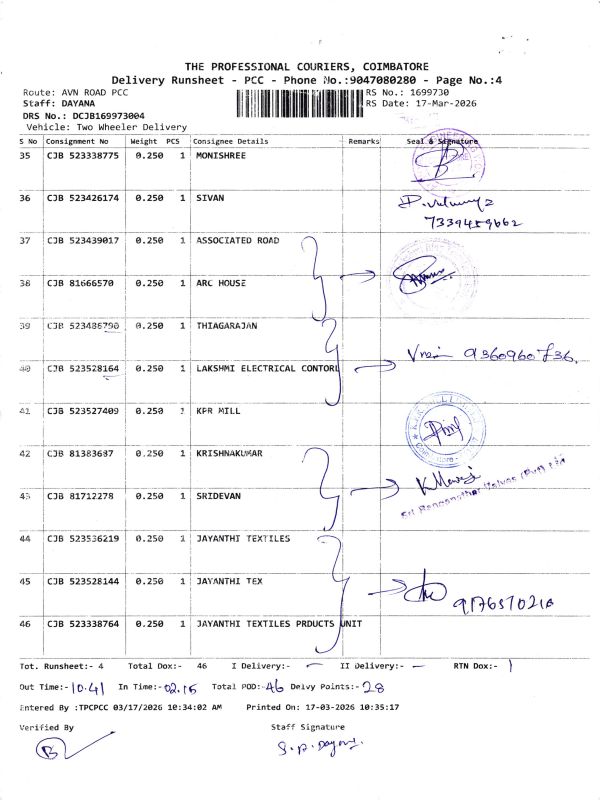 THE PROFESSIONAL COURIERS, COIMBATORE
Delivery Runsheet - PCC - Phone No.:9047080280 - Page No.:4
Route: AVN ROAD PCC
RS No.: 1699730
Staff: DAYANA
RS Date: 17-Mar-2026
DRS No.: DCJB169973004
Vehicle: Two Wheeler Delivery
S No Consignment No Weight PCS Consignee Details Remarks Seal & Signature
35 CJB 523338775 0.250 1 MONISHREE
36 CJB 523426174 0.250 1 SIVAN
7339459662
37 CJB 523439017 0.250 1 ASSOCIATED ROAD
38 CJB 81666570 0.250 1 ARC HOUSE
39 CJB 523486790 0.250 1 THIAGARAJAN
40 CJB 523528164 0.250 1 LAKSHMI ELECTRICAL CONTORL
41 CJB 523527409 0.250 1 KPR MILL
42 CJB 81383687 0.250 1 KRISHNAKUMAR
43 CJB 81712278 0.250 1 SRIDEVAN
Sri Ranganathar Valves (Pvt) Ltd
44 CJB 523536219 0.250 1 JAYANTHI TEXTILES
45 CJB 523528144 0.250 1 JAYANTHI TEX
46 CJB 523338764 0.250 1 JAYANTHI TEXTILES PRDUCTS UNIT
Tot. Runsheet:- 4 Total Dox:- 46 I Delivery:- – II Delivery:- – RTN Dox:- 1
Out Time:- 10.41 In Time:- 02.15 Total POD:- 46 Delvy Points:- 28
Entered By :TPCPCC 03/17/2026 10:34:02 AM Printed On: 17-03-2026 10:35:17
Verified By Staff Signature